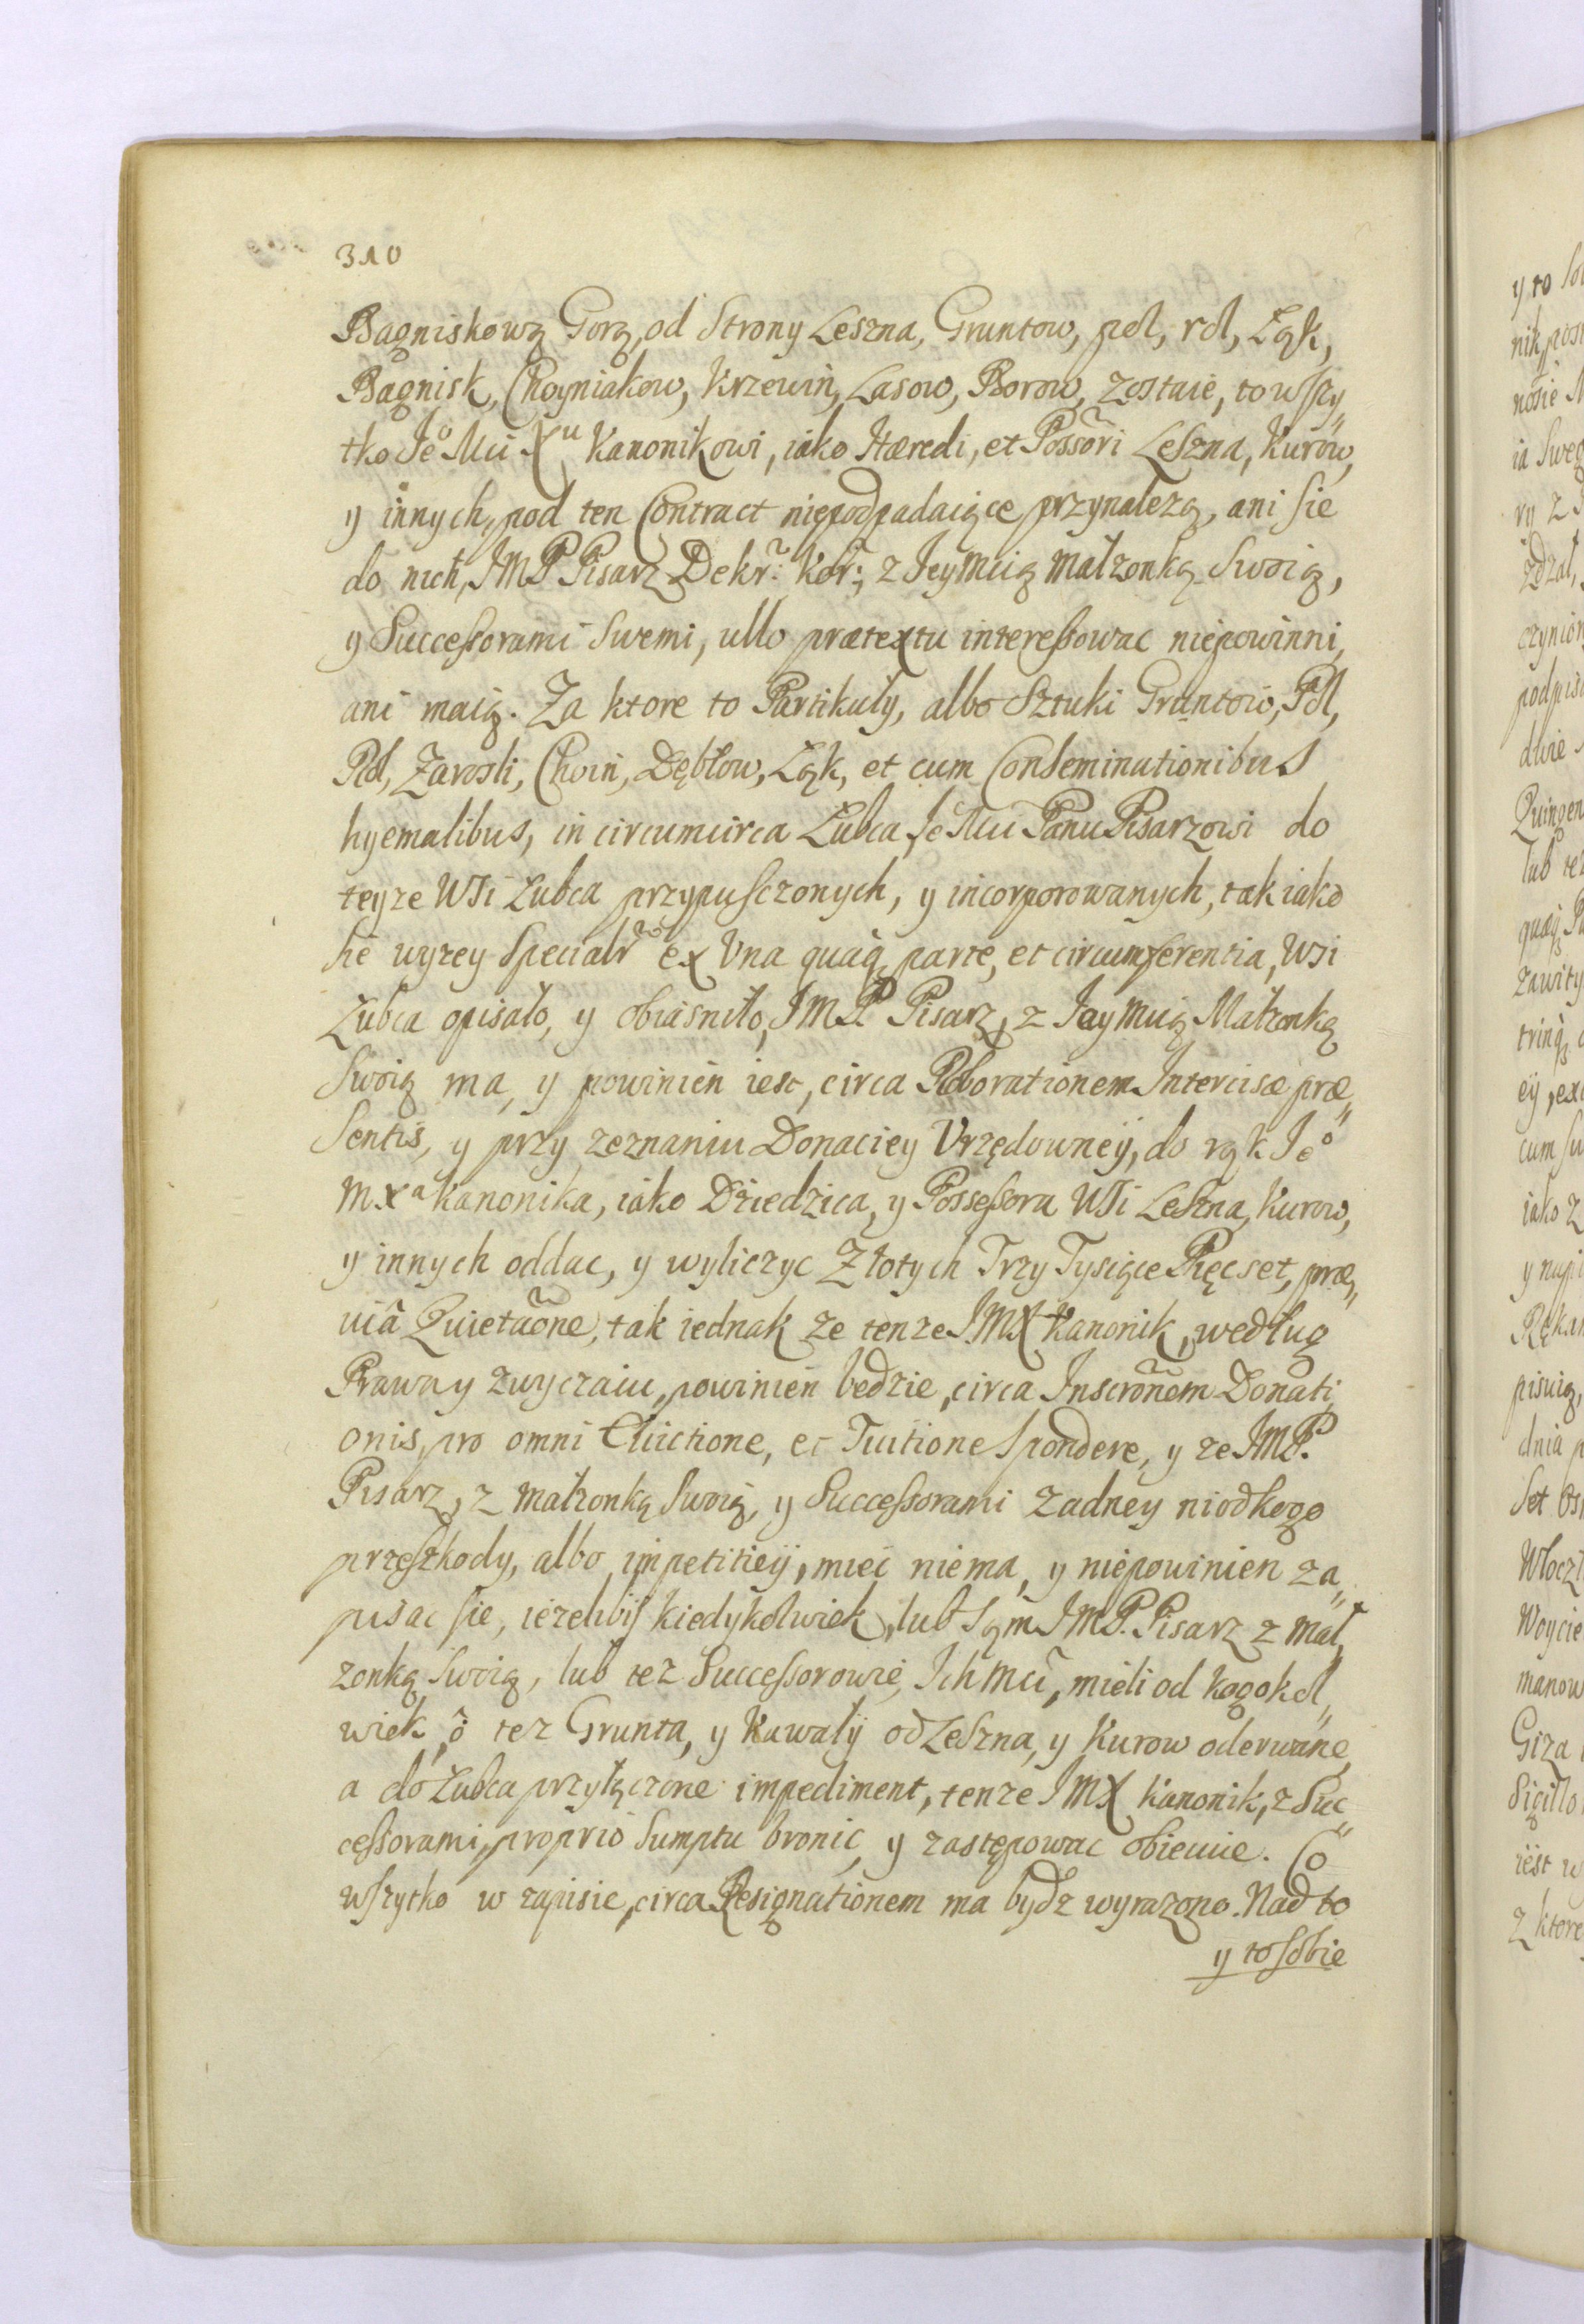 310
Bagniskową Gorą, od Strony Leszna, Gruntow, pol, rol, Łąk,
Bagnisk, Choyniakow, Krzewin, Lasow, Borow, zostaie, to wszy„
tko Jeo Mci Xu Kanonikowi, iako Hæredi, et Possõri Leszna, Kurow,
y innych, pod ten Contract niepodpadaiące przynalezą, ani sie
do nich, JMP Pisarz Dekr: Kor: z Jeymcią Małzonką Swoią,
y Successorami Swemi, ullo prætextu interessowac niepowinni,
ani maią. Za ktore to Partikuły, albo Sztuki Gruntow, Pol,
Rol, Zarosli, Choin, Dębłow, Łąk, et cum Conseminationibus
hyemalibus, in circumcirca Łubca, Je Mci Panu Pisarzowi do
teyze Wsi Łubca przypusczonych, y incorporowanych, tak iako
sie wyzey Specialr ex Una quaq parte, et circumferentia, Wsi
Łubca opisało, y obiasniło, JMP Pisarz, z Jeymcią Małzonką
Swoią ma, y powinien iest, circa Roborationem Intercisæ præ„
sentis, y przy zeznaniu Donaciey Urzędowney, do rąk Jeo
M. Xa Kanonika, iako Dziedzica, y Possessora Wsi Leszna, Kurow,
y innych oddac, y wyliczyc Złotych Trzy Tysiące Pięcset, præ„
uiâ Quietaõne, tak iednak ze tenze JMX Kanonik, według
Prawa y zwyczaiu, powinien bedzie, circa Inscrõnem Donati„
onis, pro omni Euictione, et Tuitione Spondere, y ze JMP.
Pisarz, z małzonką Swoią, y Successorami zadney niodkogo
przeszkody, albo impeticiey, miec niema, y niepowinien za„
pisac sie, iezeliby kiedykolwiek, lub Sąm JMP. Pisarz z mał„
zonką Swoią, lub tez Successorowie, Ichmći, mieli od kogokol„
wiek, o tez Grunta, y Kawały od Leszna, y Kurow oderwane,
a do Łubca przyłączone impediment, tenze JMX Kanonik, z Suc„
cessorami, proprio Sumptu bronic, y zastępowac obiecuie. Co
wszytko w zapisie, circa Resignationem ma bydz wyrazono. Nad to
y to sobie